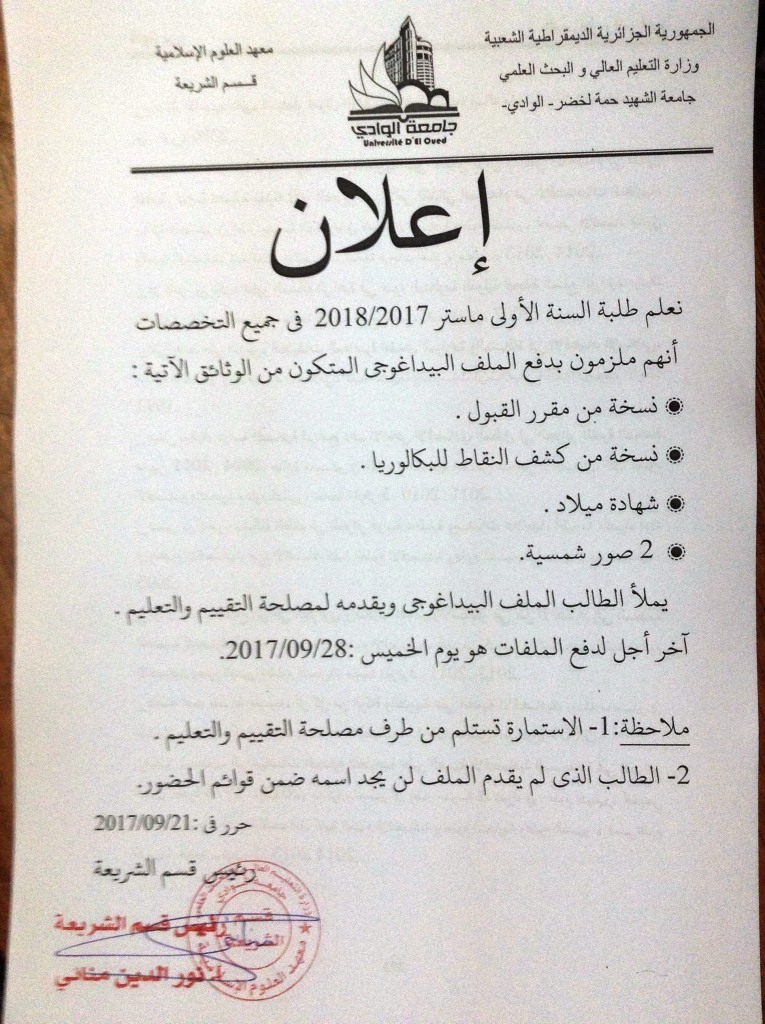 الجمهورية الجزائرية الديمقراطية الشعبية
وزارة التعليم العالي و البحث العلمي
جامعة الشهيد حمة لخضر - الوادي-
جامعة الوادي
Université D'El Oued
معهد العلوم الإسلامية
قسم الشريعة
إعلان
نعلم طلبة السنة الأولى ماستر 2018/2017 فى جميع التخصصات
أنهم ملزمون بدفع الملف البيداغوجى المتكون من الوثائق الآتية :
نسخة من مقرر القبول .
نسخة من كشف النقاط للبكالوريا .
شهادة ميلاد .
2 صور شمسية.
يملأ الطالب الملف البيداغوجى ويقدمه لمصلحة التقييم والتعليم .
آخر أجل لدفع الملفات هو يوم الخميس :2017/09/28.
ملاحظة:1- الاستمارة تستلم من طرف مصلحة التقييم والتعليم .
2- الطالب الذى لم يقدم الملف لن يجد اسمه ضمن قوائم الحضور.
حرر فى :2017/09/21
رئيس قسم الشريعة
رئيس قسم الشريعة
نور الدين مناني
قسم
الشريعة
معهد العلوم الإسلامية